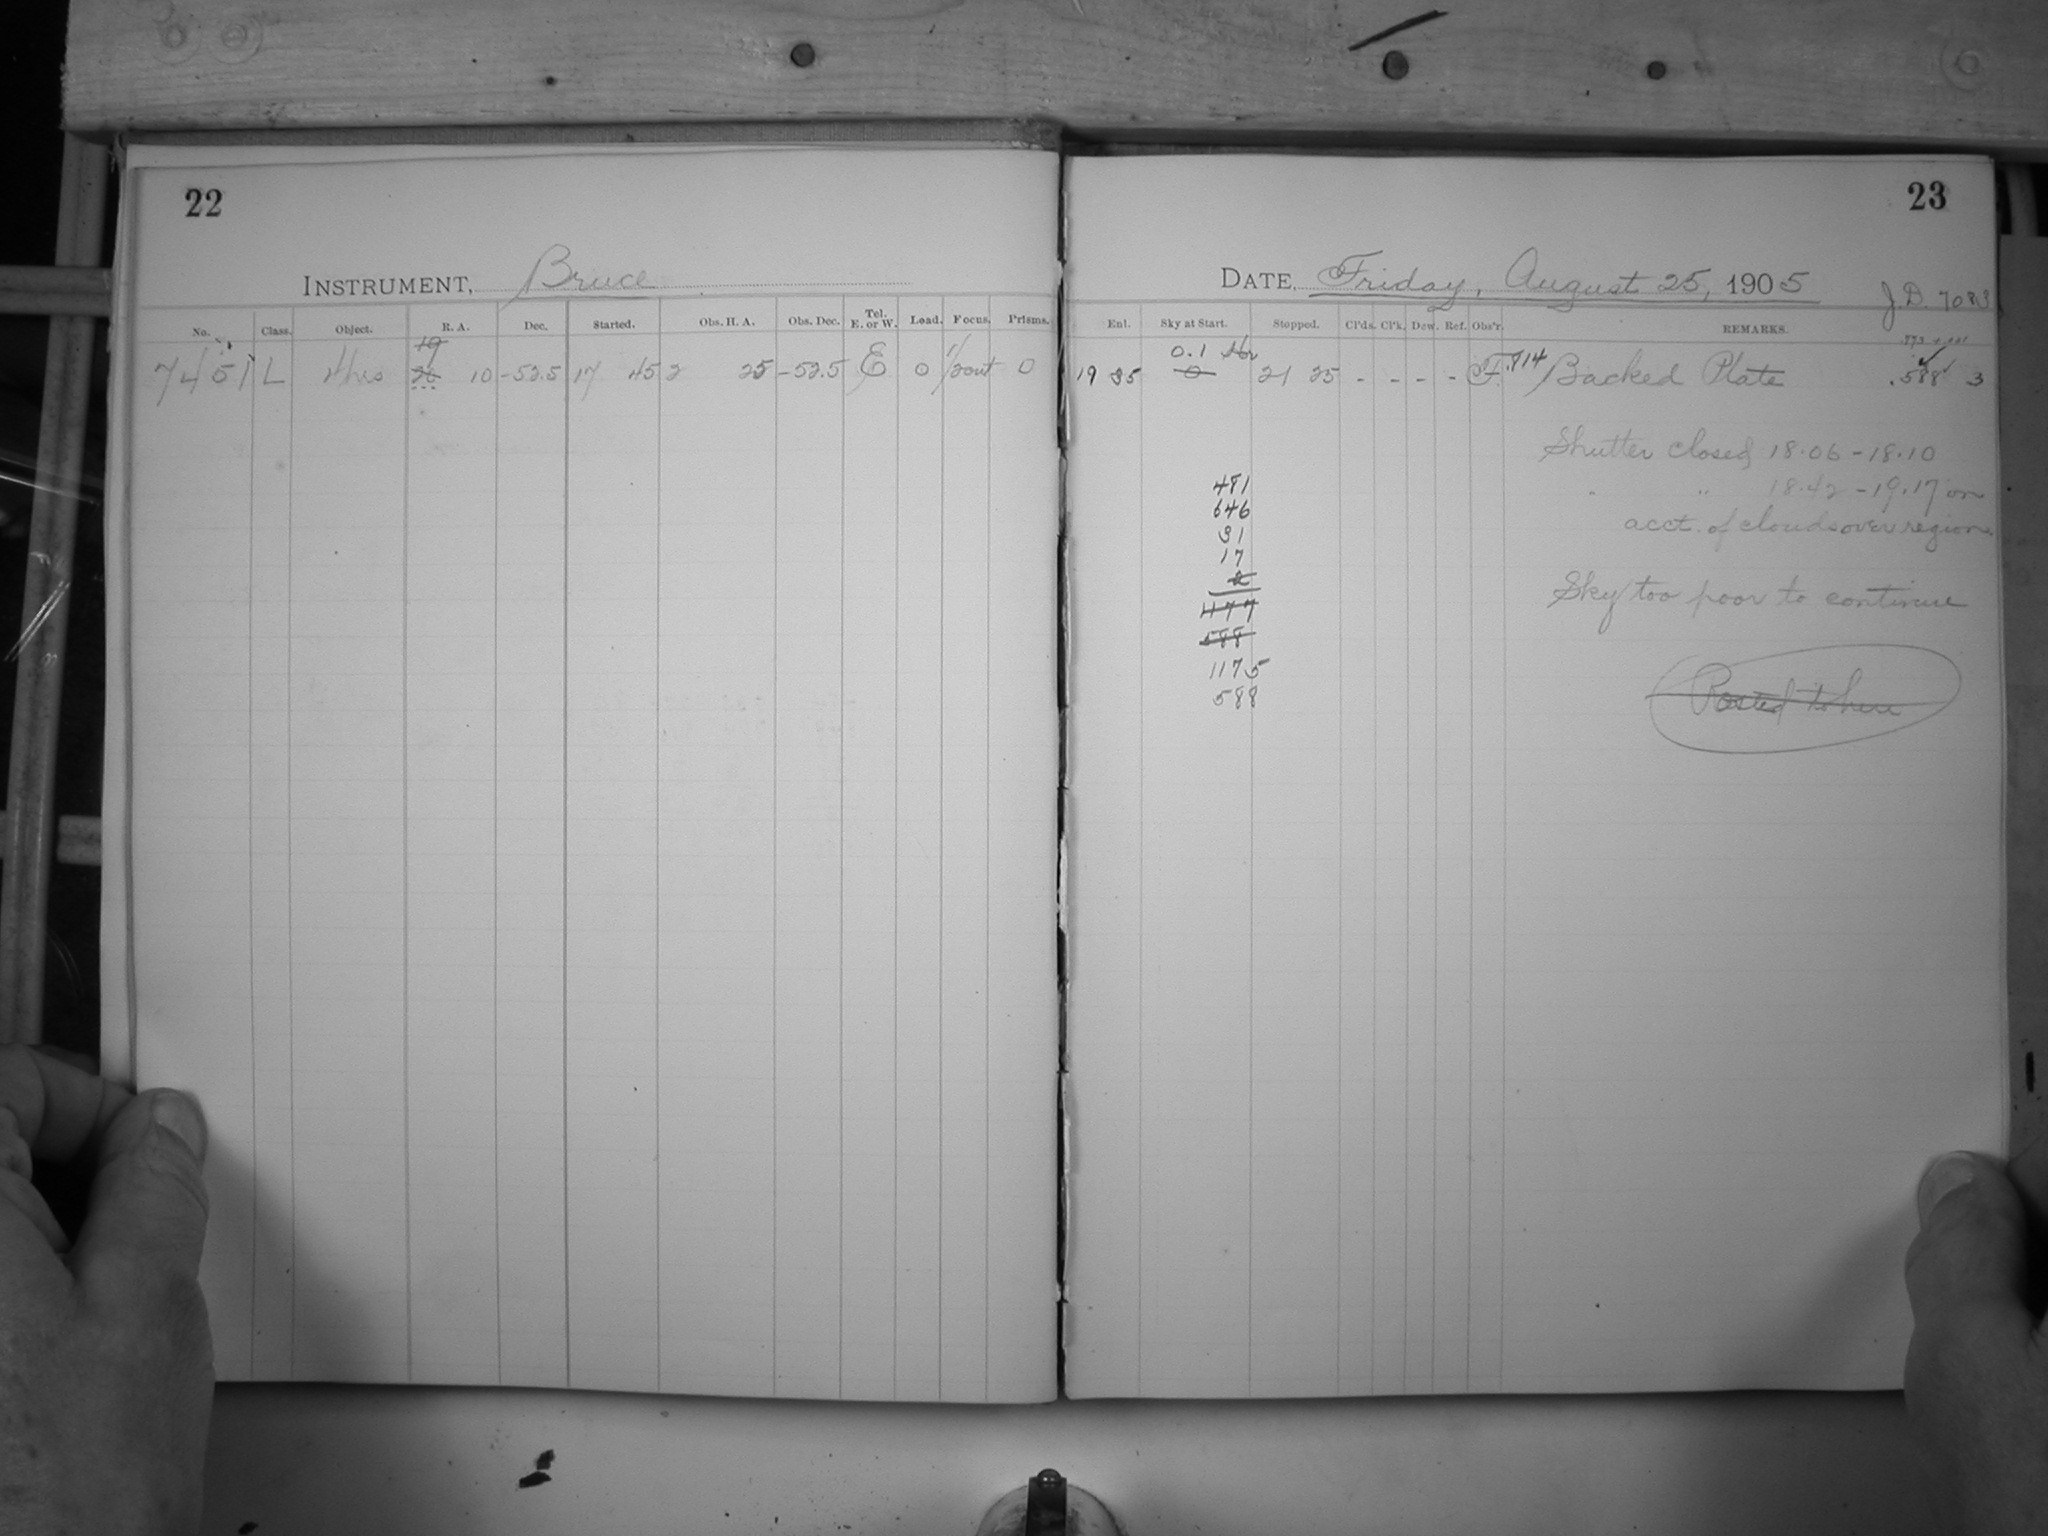 22
INSTRUMENT, Bruce
No. Class. Object. R. A. Dec. Started. Obs. H. A. Obs. Dec. Tel. E. or W. Load. Focus. Prisms.
19
7451 L 4hrs 20 10 -52.5 17 45 2 25 -52.5 E 0 1/2out 0
23
DATE, Friday, August 25, 1905 J.D. 7083
Enl. Sky at Start. Stopped. Cl'ds. Cl'k. Dew. Ref. Obs'r. REMARKS.
0.1
19 35 0 21 25 - - - - F .814 Backed Plate .588 3
Shutter closed 18.06 - 18.10
" " 18.42 - 19.17 on
acct. of clouds over region.
Sky too poor to continue
Posted to here
481
646
31
17
477
588
1175
588